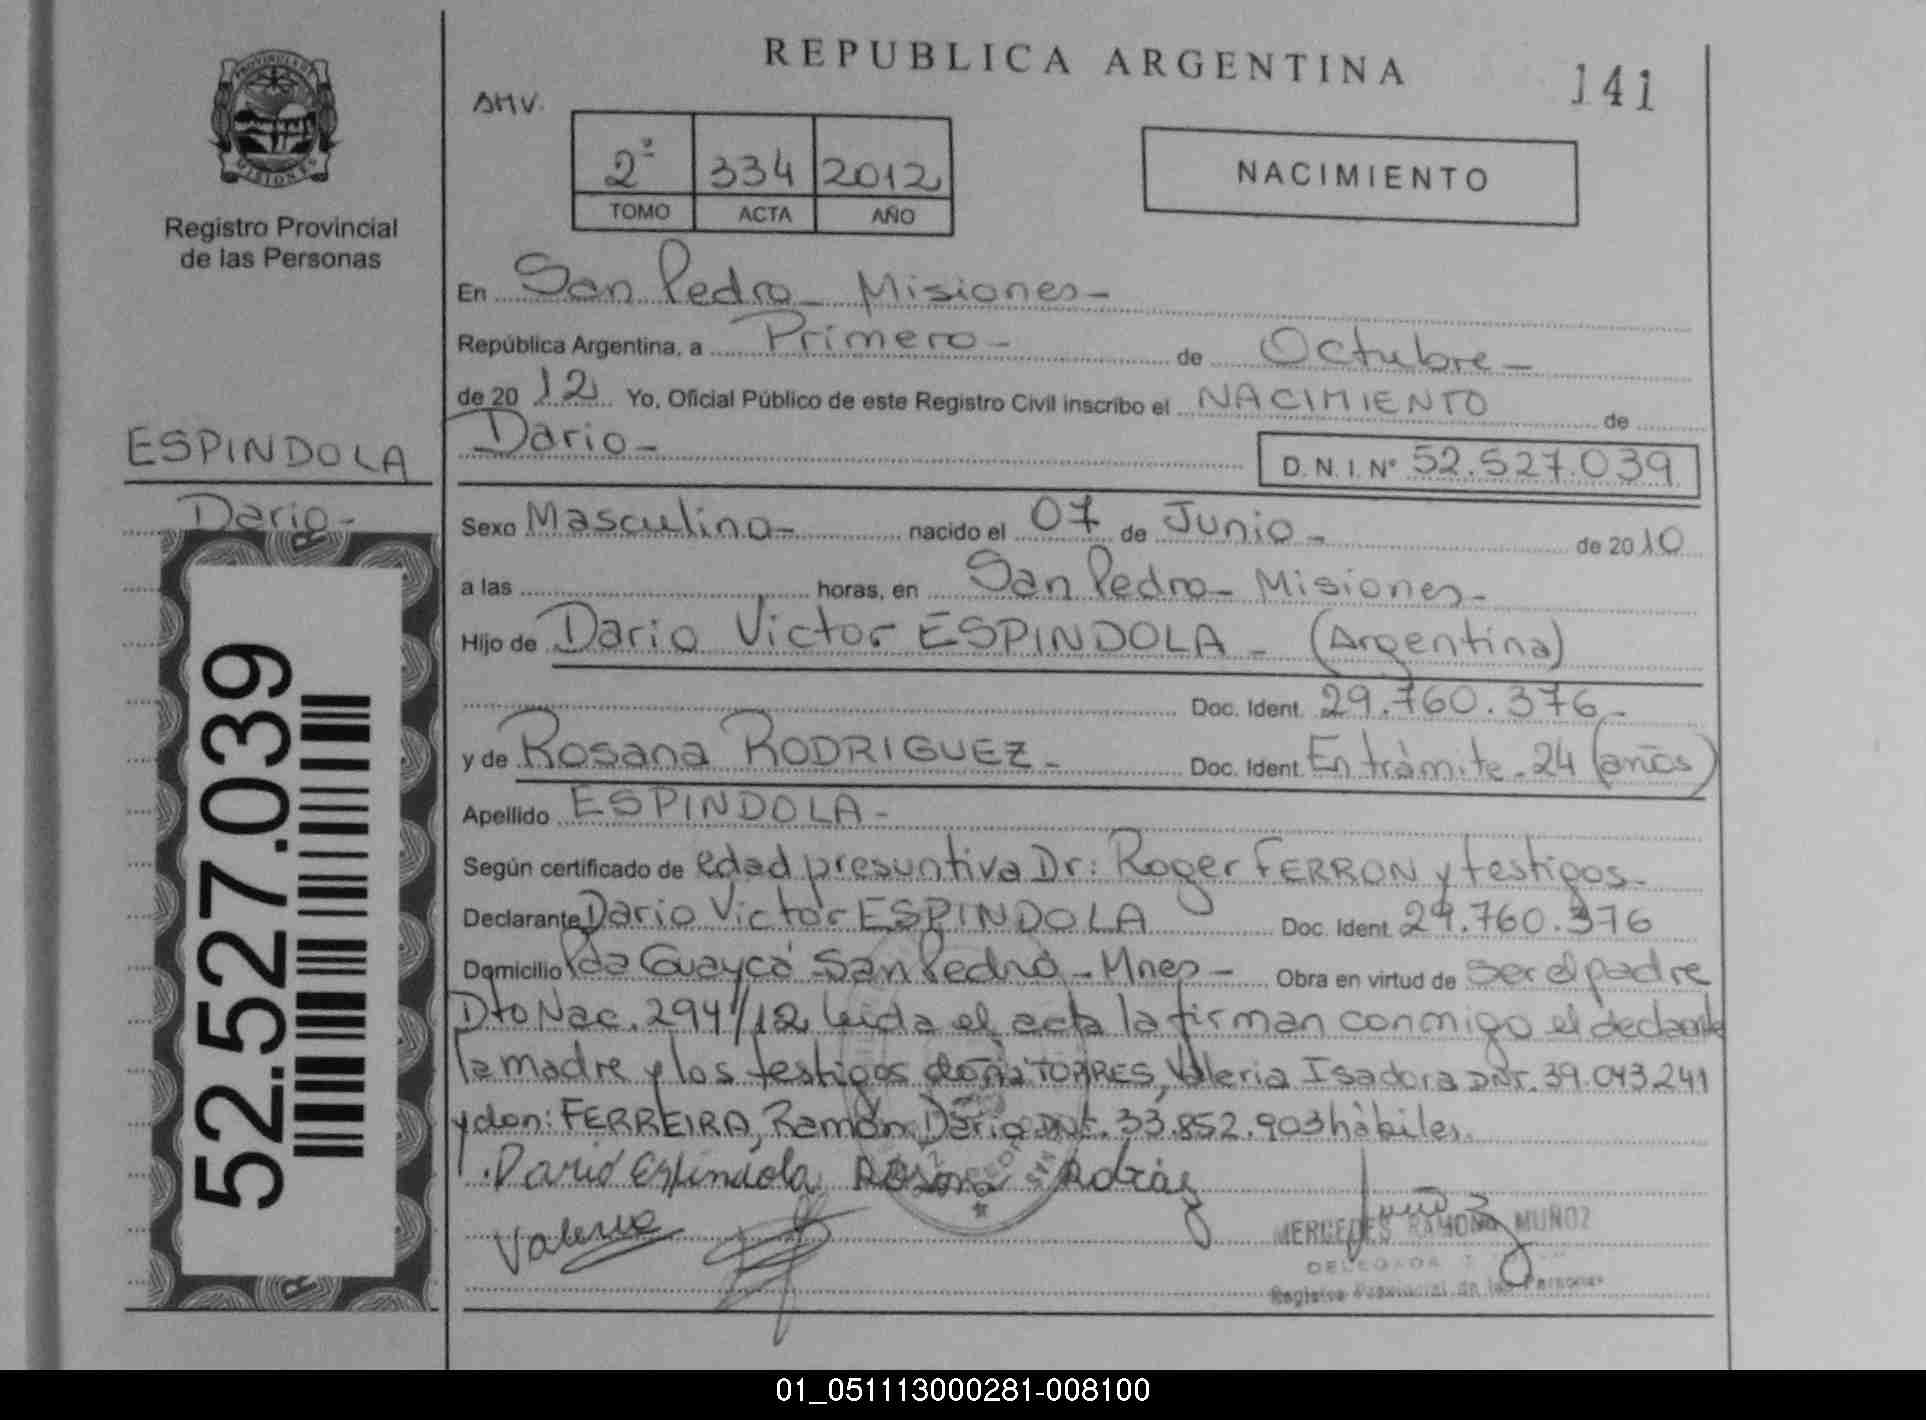 REPUBLICA ARGENTINA
141
AMV.
2º 334 2012
TOMO ACTA AÑO
NACIMIENTO
PROVINCIA DE
MISIONES
Registro Provincial
de las Personas
ESPINDOLA
Dario-
52.527.039
En San Pedro - Misiones -
República Argentina, a Primero - de Octubre -
de 20 12 Yo, Oficial Público de este Registro Civil inscribo el NACIMIENTO de
Dario - D.N.I. Nº 52.527.039
Sexo Masculino - nacido el 07 de Junio - de 20 10
a las horas, en San Pedro - Misiones -
Hijo de Dario Victor ESPINDOLA - (Argentina)
Doc. Ident. 29.760.376 -
y de Rosana RODRIGUEZ - Doc. Ident. En tràmite - 24 (años)
Apellido ESPINDOLA -
Según certificado de edad presuntiva Dr: Roger FERRON y testigos -
Declarante Dario Victor ESPINDOLA Doc. Ident. 29.760.376
Domicilio Pda Guaycá San Pedro - Mnes - Obra en virtud de ser el padre
Dto Nac. 294/12 leida el acta la firman conmigo el declarante
la madre y los testigos doña TORRES, Valeria Isadora DNI. 39.043.241
y don: FERREIRA, Ramón Dario DNI. 33.852.903 hàbiles.
Dario Espindola Rosana
Valeria
MERCEDES RAMONA MUÑOZ
DELEGADA
Registro Provincial de las Personas
01_051113000281-008100